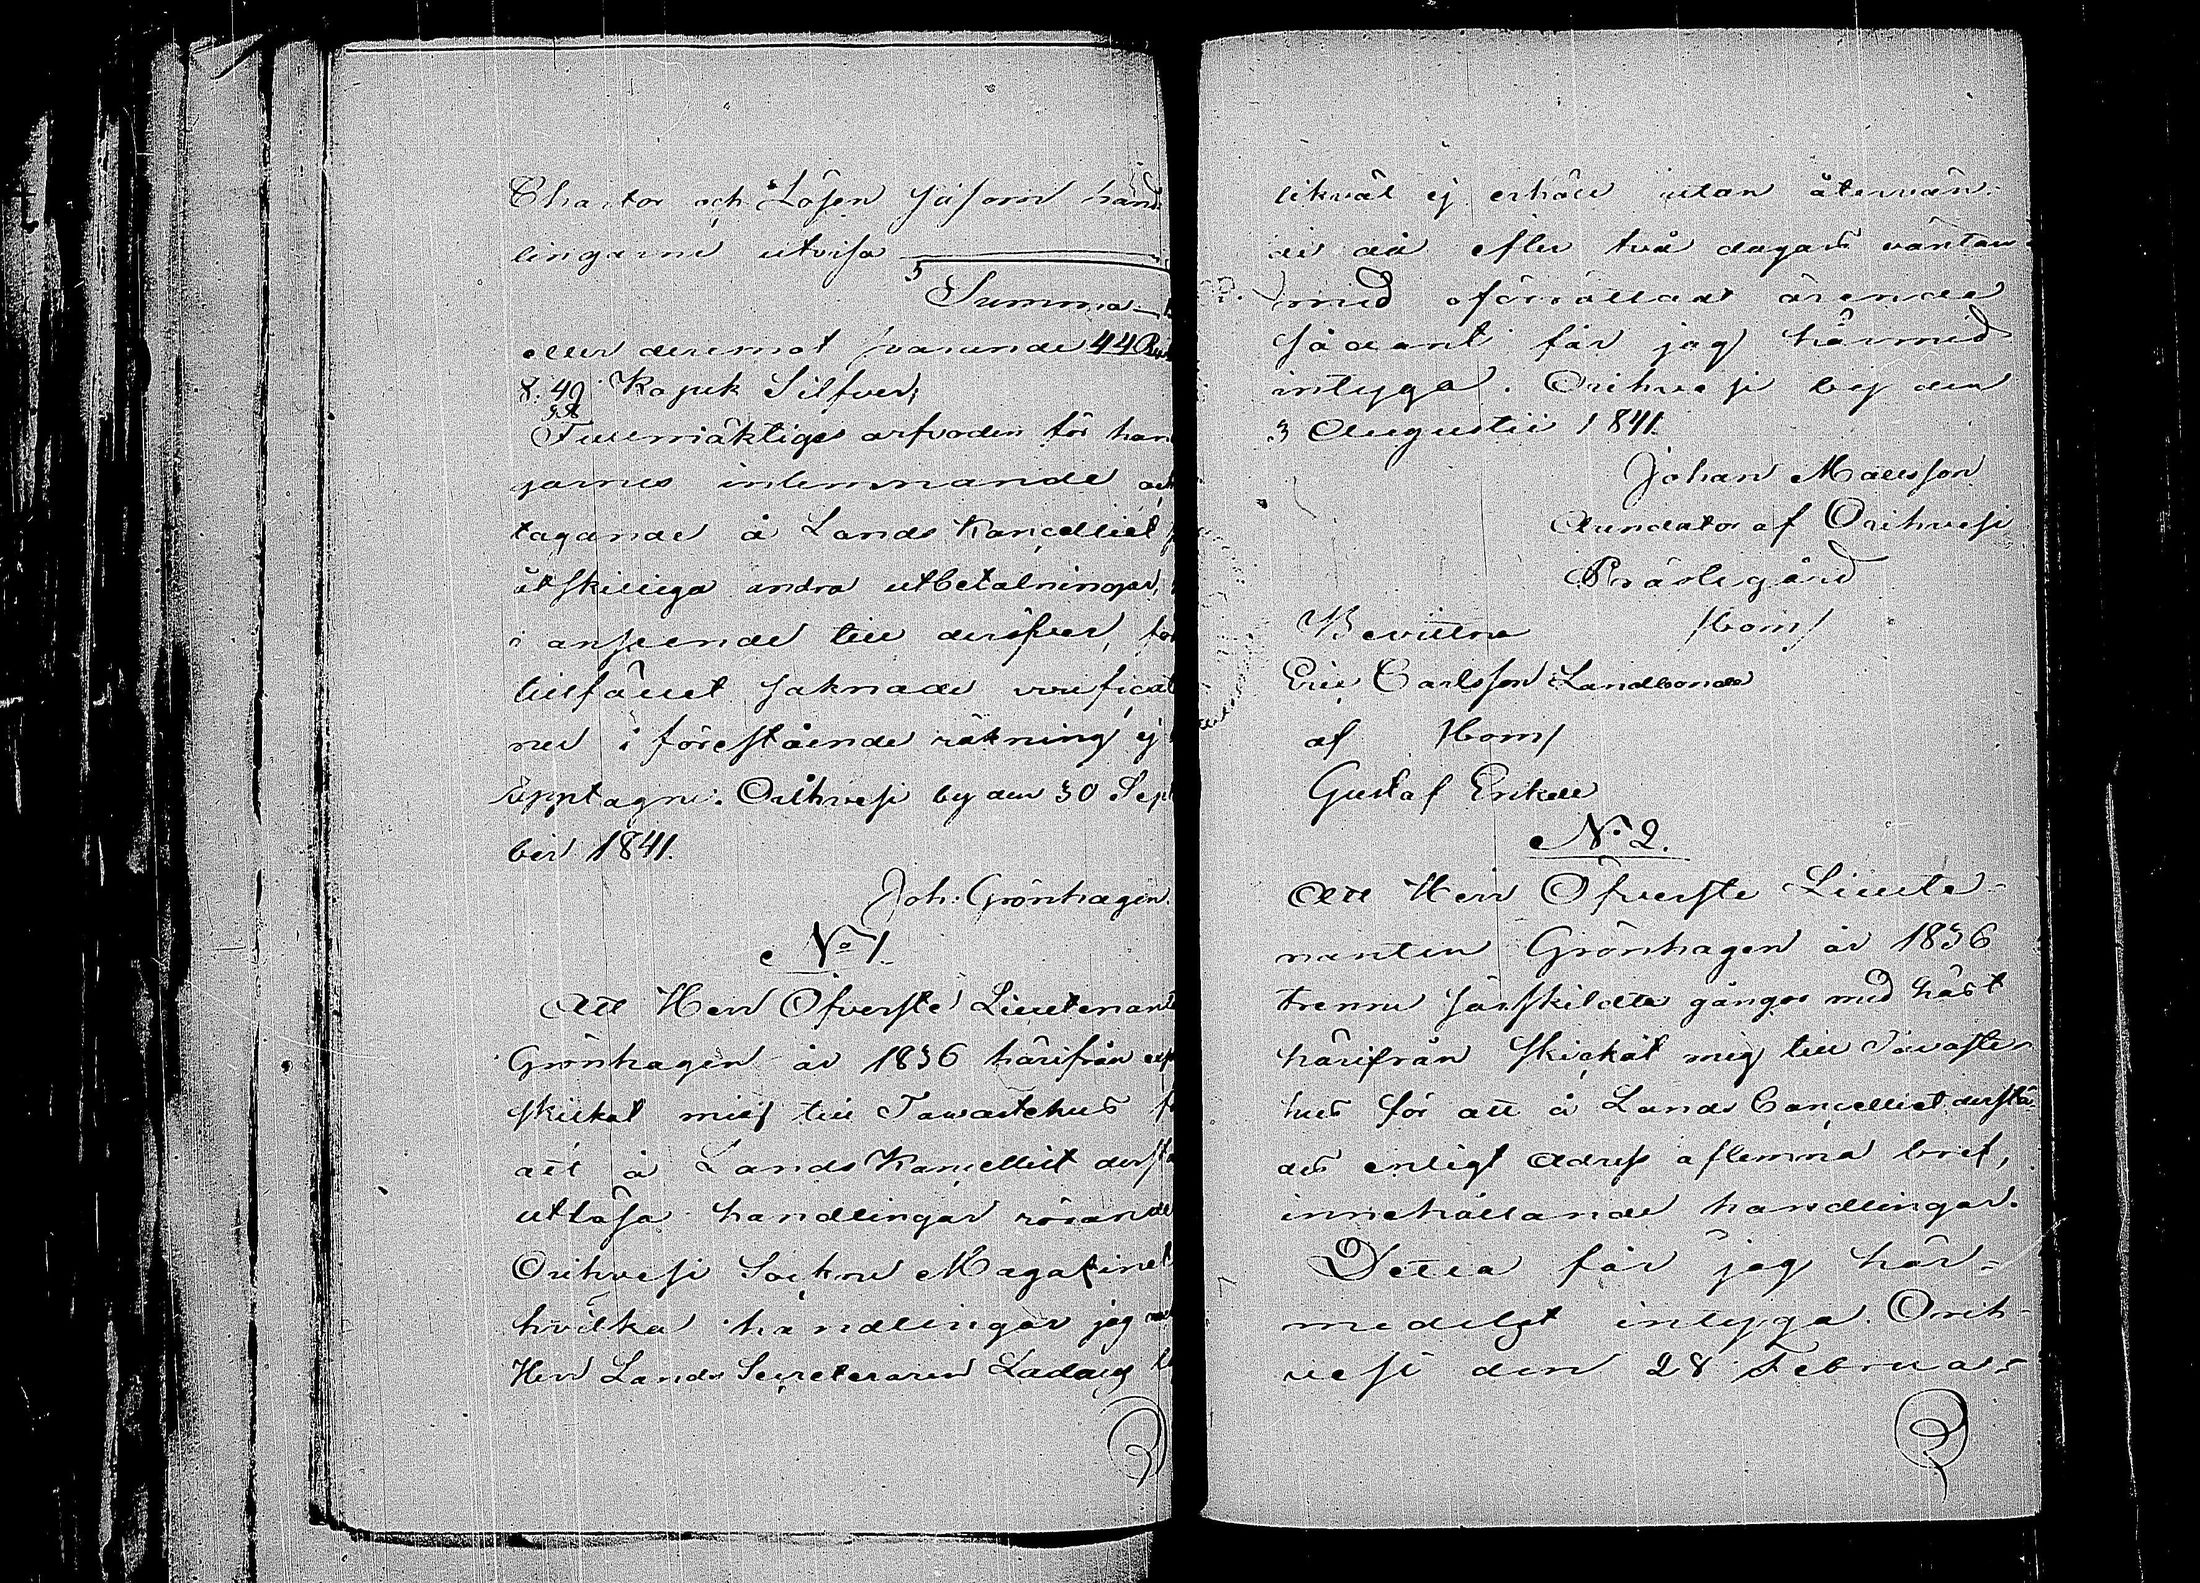 Chartor och Lösen såsom hand-
lingarne utvisa
Summa
eller deremot svarande 44 Rub
8. 49 Kopek Silfver;
Fullmäktiges arfvoden för han
jarnes inlemnande och
tagande å Lands Kancelliet
åtskilliga andra utbetalningar,
i anseende till deröfver, för
tillfället saknade verificat
ner i förestående räkning ej
upptagne. Orihvesi by den 30 Sept
ber 1841.
Joh: Grönhagen.
No 1.
Att Herr Öfverste Lieutenant
Grönhagen år 1836 härifrån
skickat mig till Tawastehus
att å Lands Kancelliet derst
utlösa handlingar rörande
Orihvesi Sockne Magazinet
hvilka handlingar jag
Herr Lands Secreteraren Ladau
likväl ej erhöll utan återvän-
de då efter två dagars väntan
med oförrättadt ärende
Sådant får jag härmed
intyga. Orihvesi by den
3 Augustii 1841.
Johan Mattsson
Arrendator af Orihvesi
Prästegård
Bevittna
Eric Carlsson Landbonde
af
Gustaf Erikell
No 2.
Att Herr Öfverste Lieute-
nanten Grönhagen år 1836
trenne särskildta gångor med häst
härifrån skickat mig till Tavaste
hus för att å Lands Cancelliet derstä-
des enligt adress aflemna bref,
innehållande handlingar.
Detta får jag här-
medelst intyga. Orih-
vesi den 28 Februa-